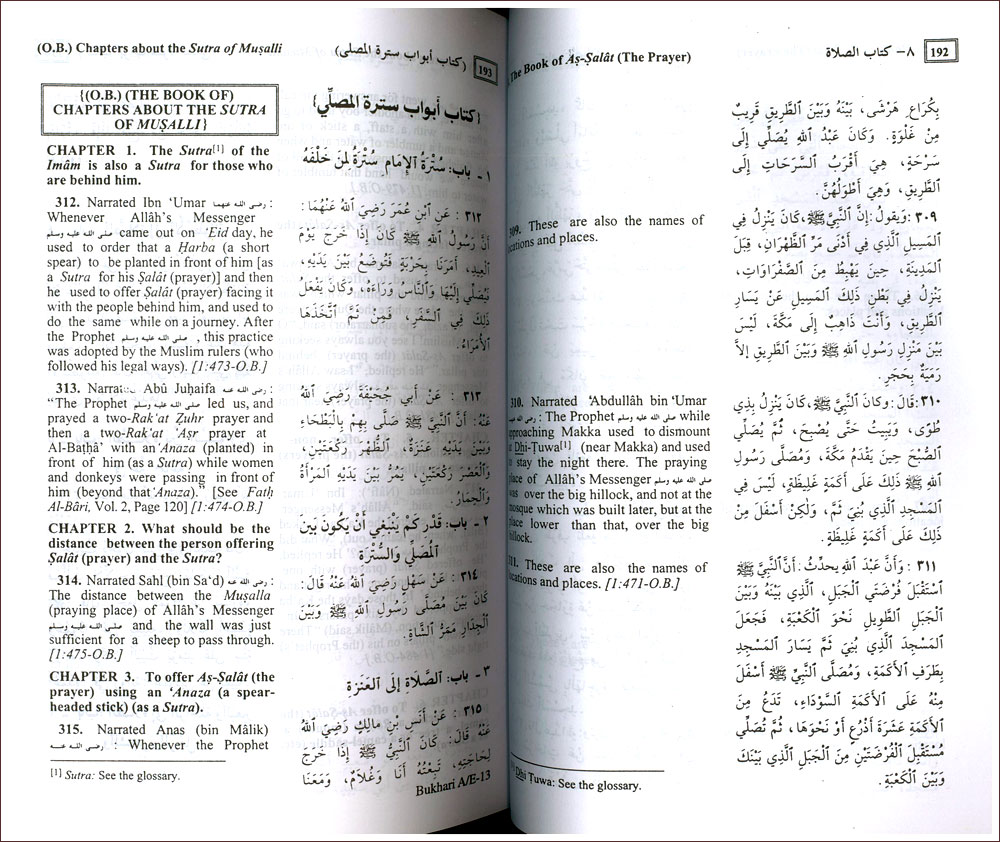 The Book of Aṣ-Ṣalât (The Prayer)
٨- كتاب الصلاة
192
These are also the names of
and places.
310. Narrated ‘Abdullâh bin ‘Umar
رضى الله عنهما : The Prophet صلى الله عليه وسلم while
approaching Makka used to dismount
Dhi-Ṭuwa[1] (near Makka) and used
stay the night there. The praying
place of Allâh's Messenger صلى الله عليه وسلم
was over the big hillock, and not at the
mosque which was built later, but at the
place lower than that, over the big
hillock.
311. These are also the names of
and places. [1:471-O.B.]
Dhi Ṭuwa: See the glossary.
بِكُرَاعِ هَرْشَى، بَيْنَهُ وَبَيْنَ ٱلطَّرِيقِ قَرِيبٌ
مِنْ غَلْوَةٍ. وَكَانَ عَبْدُ ٱللهِ يُصَلِّي إِلَى
سَرْحَةٍ، هِيَ أَقْرَبُ ٱلسَّرَحَاتِ إِلَى
ٱلطَّرِيقِ، وَهِيَ أَطْوَلُهُنَّ.
٣٠٩ : وَيقولُ: إِنَّ ٱلنَّبِيَّ ﷺ، كَانَ يَنْزِلُ فِي
ٱلمَسِيلِ ٱلَّذِي فِي أَدْنَى مَرِّ ٱلظَّهْرَانِ، قِبَلَ
ٱلمَدِينَةِ، حِينَ يَهْبِطُ مِنَ ٱلصَّفْرَاوَاتِ،
يَنْزِلُ فِي بَطْنِ ذٰلِكَ ٱلمَسِيلِ عَنْ يَسَارِ
ٱلطَّرِيقِ، وَأَنْتَ ذَاهِبٌ إِلَى مَكَّةَ، لَيْسَ
بَيْنَ مَنْزِلِ رَسُولِ ٱللهِ ﷺ وَبَيْنَ ٱلطَّرِيقِ إِلاَّ
رَمْيَةٌ بِحَجَرٍ.
٣١٠ : قَالَ: وكَانَ ٱلنَّبِيَّ ﷺ، كَانَ يَنْزِلُ بِذِي
طُوًى، وَيَبِيتُ حَتَّى يُصْبِحَ، ثُمَّ يُصَلِّي
ٱلصُّبْحَ حِينَ يَقْدَمُ مَكَّةَ، وَمُصَلَّى رَسُولِ
ٱللهِ ﷺ ذٰلِكَ عَلَى أَكَمَةٍ غَلِيظَةٍ، لَيْسَ فِي
ٱلمَسْجِدِ ٱلَّذِي بُنِيَ ثَمَّ، وَلٰكِنْ أَسْفَلَ مِنْ
ذٰلِكَ عَلَى أَكَمَةٍ غَلِيظَةٍ.
٣١١ : وَأَنَّ عَبْدَ ٱللهِ يحدِّثُ: أَنَّ ٱلنَّبِيَّ ﷺ
ٱسْتَقْبَلَ فُرْضَتَيِ ٱلجَبَلِ، ٱلَّذِي بَيْنَهُ وَبَيْنَ
ٱلجَبَلِ ٱلطَّوِيلِ نَحْوَ ٱلْكَعْبَةِ، فَجَعَلَ
ٱلمَسْجِدَ ٱلَّذِي بُنِيَ ثَمَّ يَسَارَ ٱلمَسْجِدِ
بِطَرَفِ ٱلأَكَمَةِ، وَمُصَلَّى ٱلنَّبِيِّ ﷺ أَسْفَلَ
مِنْهُ عَلَى ٱلأَكَمَةِ ٱلسَّوْدَاءِ، تَدَعُ مِنَ
ٱلأَكَمَةِ عَشَرَةَ أَذْرُعٍ أَوْ نَحْوَهَا، ثُمَّ تُصَلِّي
مُسْتَقْبِلَ ٱلْفُرْضَتَيْنِ مِنَ ٱلجَبَلِ ٱلَّذِي بَيْنَكَ
وَبَيْنَ ٱلْكَعْبَةِ.
(O.B.) Chapters about the Sutra of Muṣalli
(كتاب أبواب سترة المصلى)
193
{(O.B.) (THE BOOK OF)
CHAPTERS ABOUT THE SUTRA
OF MUṢALLI}
CHAPTER 1. The Sutra[1] of the
Imâm is also a Sutra for those who
are behind him.
312. Narrated Ibn ‘Umar رضى الله عنهما :
Whenever Allâh's Messenger
صلى الله عليه وسلم came out on ‘Eid day, he
used to order that a Ḥarba (a short
spear) to be planted in front of him [as
a Sutra for his Ṣalât (prayer)] and then
he used to offer Ṣalât (prayer) facing it
with the people behind him, and used to
do the same while on a journey. After
the Prophet صلى الله عليه وسلم , this practice
was adopted by the Muslim rulers (who
followed his legal ways). [1:473-O.B.]
313. Abû Juḥaifa رضى الله عنه :
“The Prophet صلى الله عليه وسلم led us, and
prayed a two-Rak‘at Ẓuhr prayer and
then a two-Rak‘at ‘Aṣr prayer at
Al-Baṭḥâ’ with an ‘Anaza (planted) in
front of him (as a Sutra) while women
and donkeys were passing in front of
him (beyond that ‘Anaza).” [See Fatḥ
Al-Bâri, Vol. 2, Page 120] [1:474-O.B.]
CHAPTER 2. What should be the
distance between the person offering
Ṣalât (prayer) and the Sutra?
314. Narrated Sahl (bin Sa‘d) رضى الله عنه :
The distance between the Muṣalla
(praying place) of Allâh's Messenger
صلى الله عليه وسلم and the wall was just
sufficient for a sheep to pass through.
[1:475-O.B.]
CHAPTER 3. To offer Aṣ-Ṣalât (the
prayer) using an ‘Anaza (a spear-
headed stick) (as a Sutra).
315. Narrated Anas (bin Mâlik)
رضى الله عنه : Whenever the Prophet
[1] Sutra: See the glossary.
{كتاب أبواب سترة المصلِّي}
١ - باب: سُتْرَةُ ٱلإِمَامِ سُتْرَةُ لمَنْ خَلْفَهُ
٣١٢ : عَنِ ٱبْنِ عُمَرَ رَضِيَ ٱللهُ عَنْهُمَا:
أَنَّ رَسُولَ ٱللهِ ﷺ كَانَ إِذَا خَرَجَ يَوْمَ
ٱلعِيدِ، أَمَرَنَا بِحَرْبَةٍ فَتُوضَعُ بَيْنَ يَدَيْهِ،
فَيُصَلِّي إِلَيْهَا وَٱلنَّاسُ وَرَاءَهُ، وَكَانَ يَفْعَلُ
ذٰلِكَ فِي ٱلسَّفَرِ، فَمِنْ ثَمَّ ٱتَّخَذَهَا
ٱلأُمَرَاءُ.
٣١٣ : عَنْ أَبِي جُحَيْفَةَ رَضِيَ ٱللهُ
عَنْهُ: أَنَّ ٱلنَّبِيَّ ﷺ صَلَّى بِهِمْ بِٱلْبَطْحَاءِ
وَبَيْنَ يَدَيْهِ عَنَزَةٌ، ٱلظُّهْرَ رَكْعَتَيْنِ،
وَٱلْعَصْرَ رَكْعَتَيْنِ، يَمُرُّ بَيْنَ يَدَيْهِ ٱلمَرْأَةُ
وَٱلْحِمَارُ.
٢ - باب: قَدْرِ كَمْ يَنْبَغِي أَنْ يَكُونَ بَيْنَ
ٱلْمُصَلِّي وَٱلسُّتْرَةِ
٣١٤ : عَنْ سَهْلٍ رَضِيَ ٱللهُ عَنْهُ قَالَ:
كَانَ بَيْنَ مُصَلَّى رَسُولِ ٱللهِ ﷺ وَبَيْنَ
ٱلْجِدَارِ مَمَرُّ ٱلشَّاةِ.
٣ - باب: ٱلصَّلاَةُ إِلَى ٱلعَنَزَةِ
٣١٥ : عَنْ أَنَسِ بْنِ مالِكٍ رَضِيَ ٱللهُ
عَنْهُ قَالَ: كَانَ ٱلنَّبِيُّ ﷺ إِذَا خَرَجَ
لِحَاجَتِهِ، تَبِعْتُهُ أَنَا وَغُلاَمٌ، وَمَعَنَا
Bukhari A/E-13